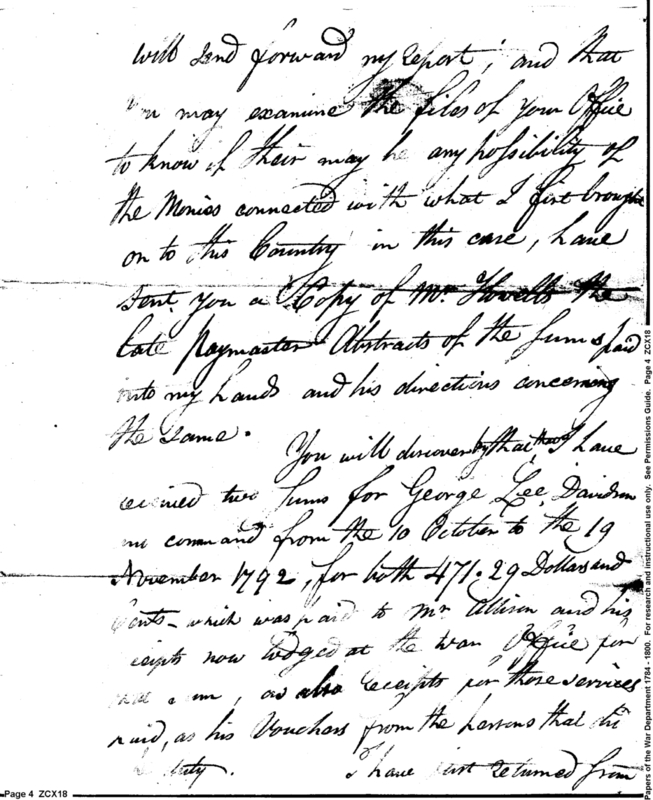 will send forward my report; and that
may examine the files of your Office
to know if their may be any possibility of
the Monies connected with what I first brought
on to this Country in this case, have
sent you a Copy of Mr. Howells the
late Paymaster Abstracts of the sums paid
into my hands and his directions concerning
the same.
You will discover by that, that I have
received two sums for George Lee Davidson
command from the 10 October to the 19
November 1792, for both 471.29 Dollars and
Cents - which was paid to Mr Allison and his
receipts now lodged at the War Office for
that sum, as also receipts for those services
paid, as his Vouchers from the persons that did
duty. I have just returned from
Page 4 ZCX18
Papers of the War Department 1784 - 1800. For research and instructional use only. See Permissions Guide. Page 4 ZCX18